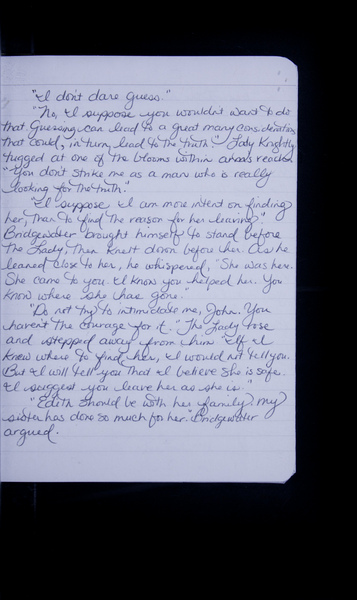 "I don't dare guess."
"No, I suppose you wouldn't want to do
that. Guessing can lead to a great many considerations
that could, in turn, lead to the truth." Lady Knightly
tugged at one of the blooms within arms reach.
"You don't strike me as a man who is really
looking for the truth."
"I suppose I am more intent on finding
her, than to find the reason for her leaving."
Bridgewater brought himself to stand before
the Lady, then knelt down before her. As he
leaned close to her, he whispered, "She was here.
She came to you. I know you helped her. You
know where she has gone."
"Do not try to intimidate me, John. You
haven't the courage for it." The Lady rose
and stepped away from him. "If I
knew where to find her, I would not tell you.
But I will tell you that I believe she is safe.
I suggest you leave her as she is."
"Edith should be with her family. My
sister has done so much for her." Bridgewater
argued.